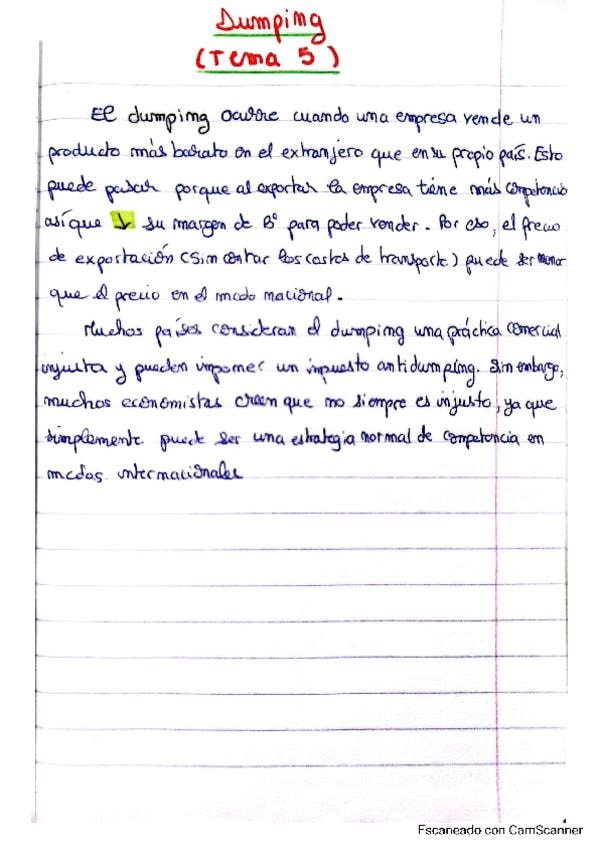 Dumping
(Tema 5)
El dumping ocurre cuando una empresa vende un
producto más barato en el extranjero que en su propio país. Esto
puede pasar porque al exportar la empresa tiene más competencia
así que ↓ su margen de Bº para poder vender. Por eso, el precio
de exportación (sin contar los costes de transporte) puede ser menor
que el precio en el mcdo nacional.
Muchos países consideran el dumping una práctica comercial
injusta y pueden imponer un impuesto antidumping. Sin embargo,
muchos economistas creen que no siempre es injusto, ya que
simplemente puede ser una estrategia normal de competencia en
mcdos. internacionales
Escaneado con CamScanner